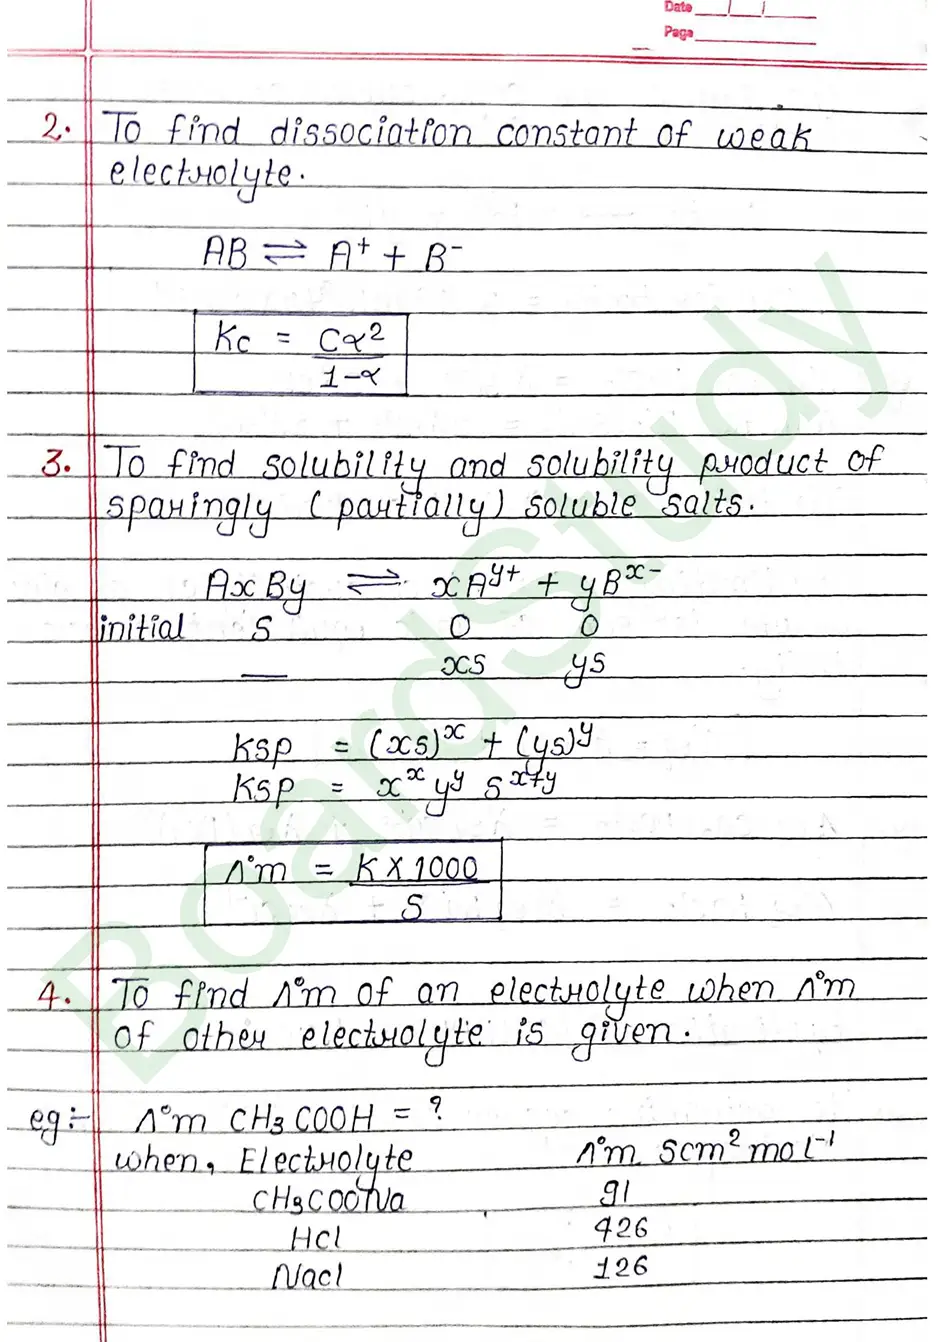 Date __/__/__
Page
2. To find dissociation constant of weak
electrolyte.
AB ⇌ A⁺ + B⁻
Kc = Cα²
1-α
3. To find solubility and solubility product of
sparingly (partially) soluble salts.
AxBy ⇌ xAʸ⁺ + yBˣ⁻
initial S O O
— xs ys
Ksp = (xs)ˣ + (ys)ʸ
Ksp = xˣ yʸ sˣ⁺ʸ
Λ°m = K X 1000
S
4. To find Λ°m of an electrolyte when Λ°m
of other electrolyte is given.
eg:- Λ°m CH₃COOH = ?
when, Electrolyte Λ°m Scm² mol⁻¹
CH₃COONa 91
HCl 426
NaCl 126
BoardStudy